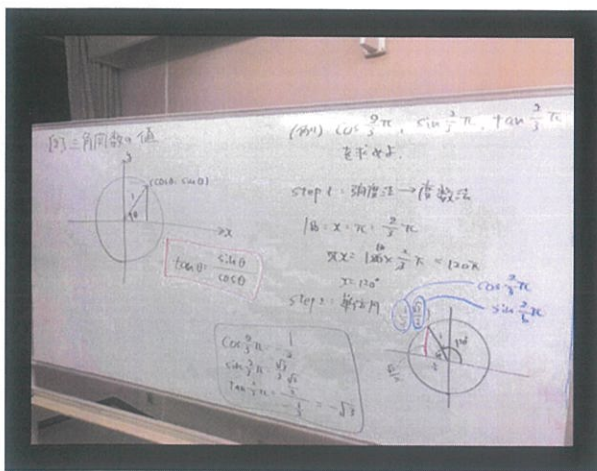 [2] 三角関数の値
y
(cosθ, sinθ)
θ
x
tanθ = sinθ/cosθ
(例) cos 2/3 π, sin 2/3 π, tan 2/3 π
を求めよ.
step 1: 弧度法 → 度数法
180 : x = π : 2/3 π
πx = 180 × 2/3 π = 120π
x = 120°
step 2: 単位円
cos 2/3 π
sin 2/3 π
cos 2/3 π = - 1/2
sin 2/3 π = √3/2
tan 2/3 π = √3/2 / - 1/2 = -√3